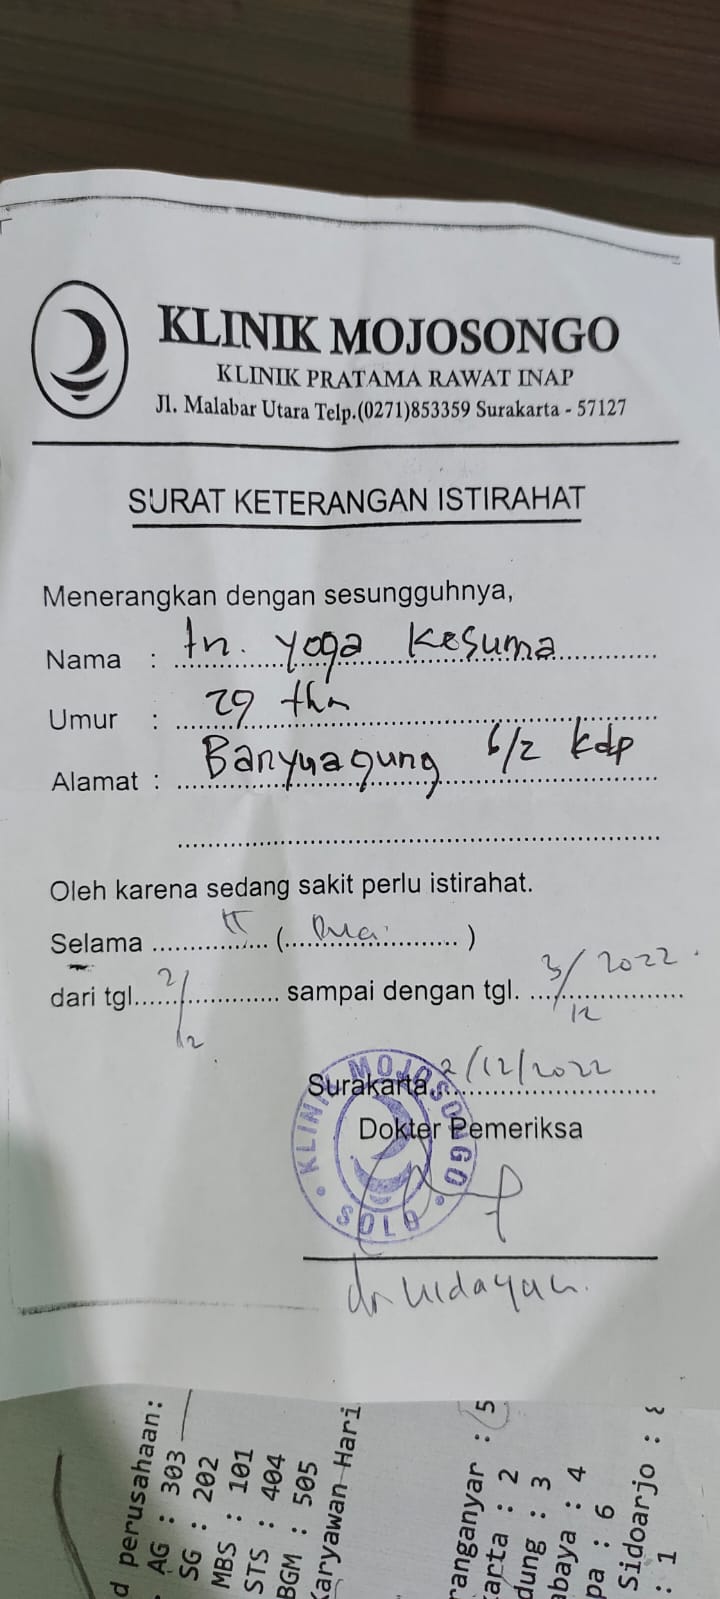 KLINIK MOJOSONGO
KLINIK PRATAMA RAWAT INAP
Jl. Malabar Utara Telp.(0271)853359 Surakarta - 57127
SURAT KETERANGAN ISTIRAHAT
Menerangkan dengan sesungguhnya,
Nama : tn. Yoga Kesuma
Umur : 29 thn
Alamat : Banyuagung 6/2 kdp
Oleh karena sedang sakit perlu istirahat.
Selama II (Dua)
dari tgl. 2/12 sampai dengan tgl. 3/12 2022.
Surakarta, 2/12/2022
Dokter Pemeriksa
KLINIK MOJOSONGO
SOLO
dr.
d perusahaan:
AG : 303
SG : 202
MBS : 101
STS : 404
BGM : 505
Karyawan Hari
ranganyar : 5
arta : 2
dung : 3
abaya : 4
pa : 6
Sidoarjo :
: 1